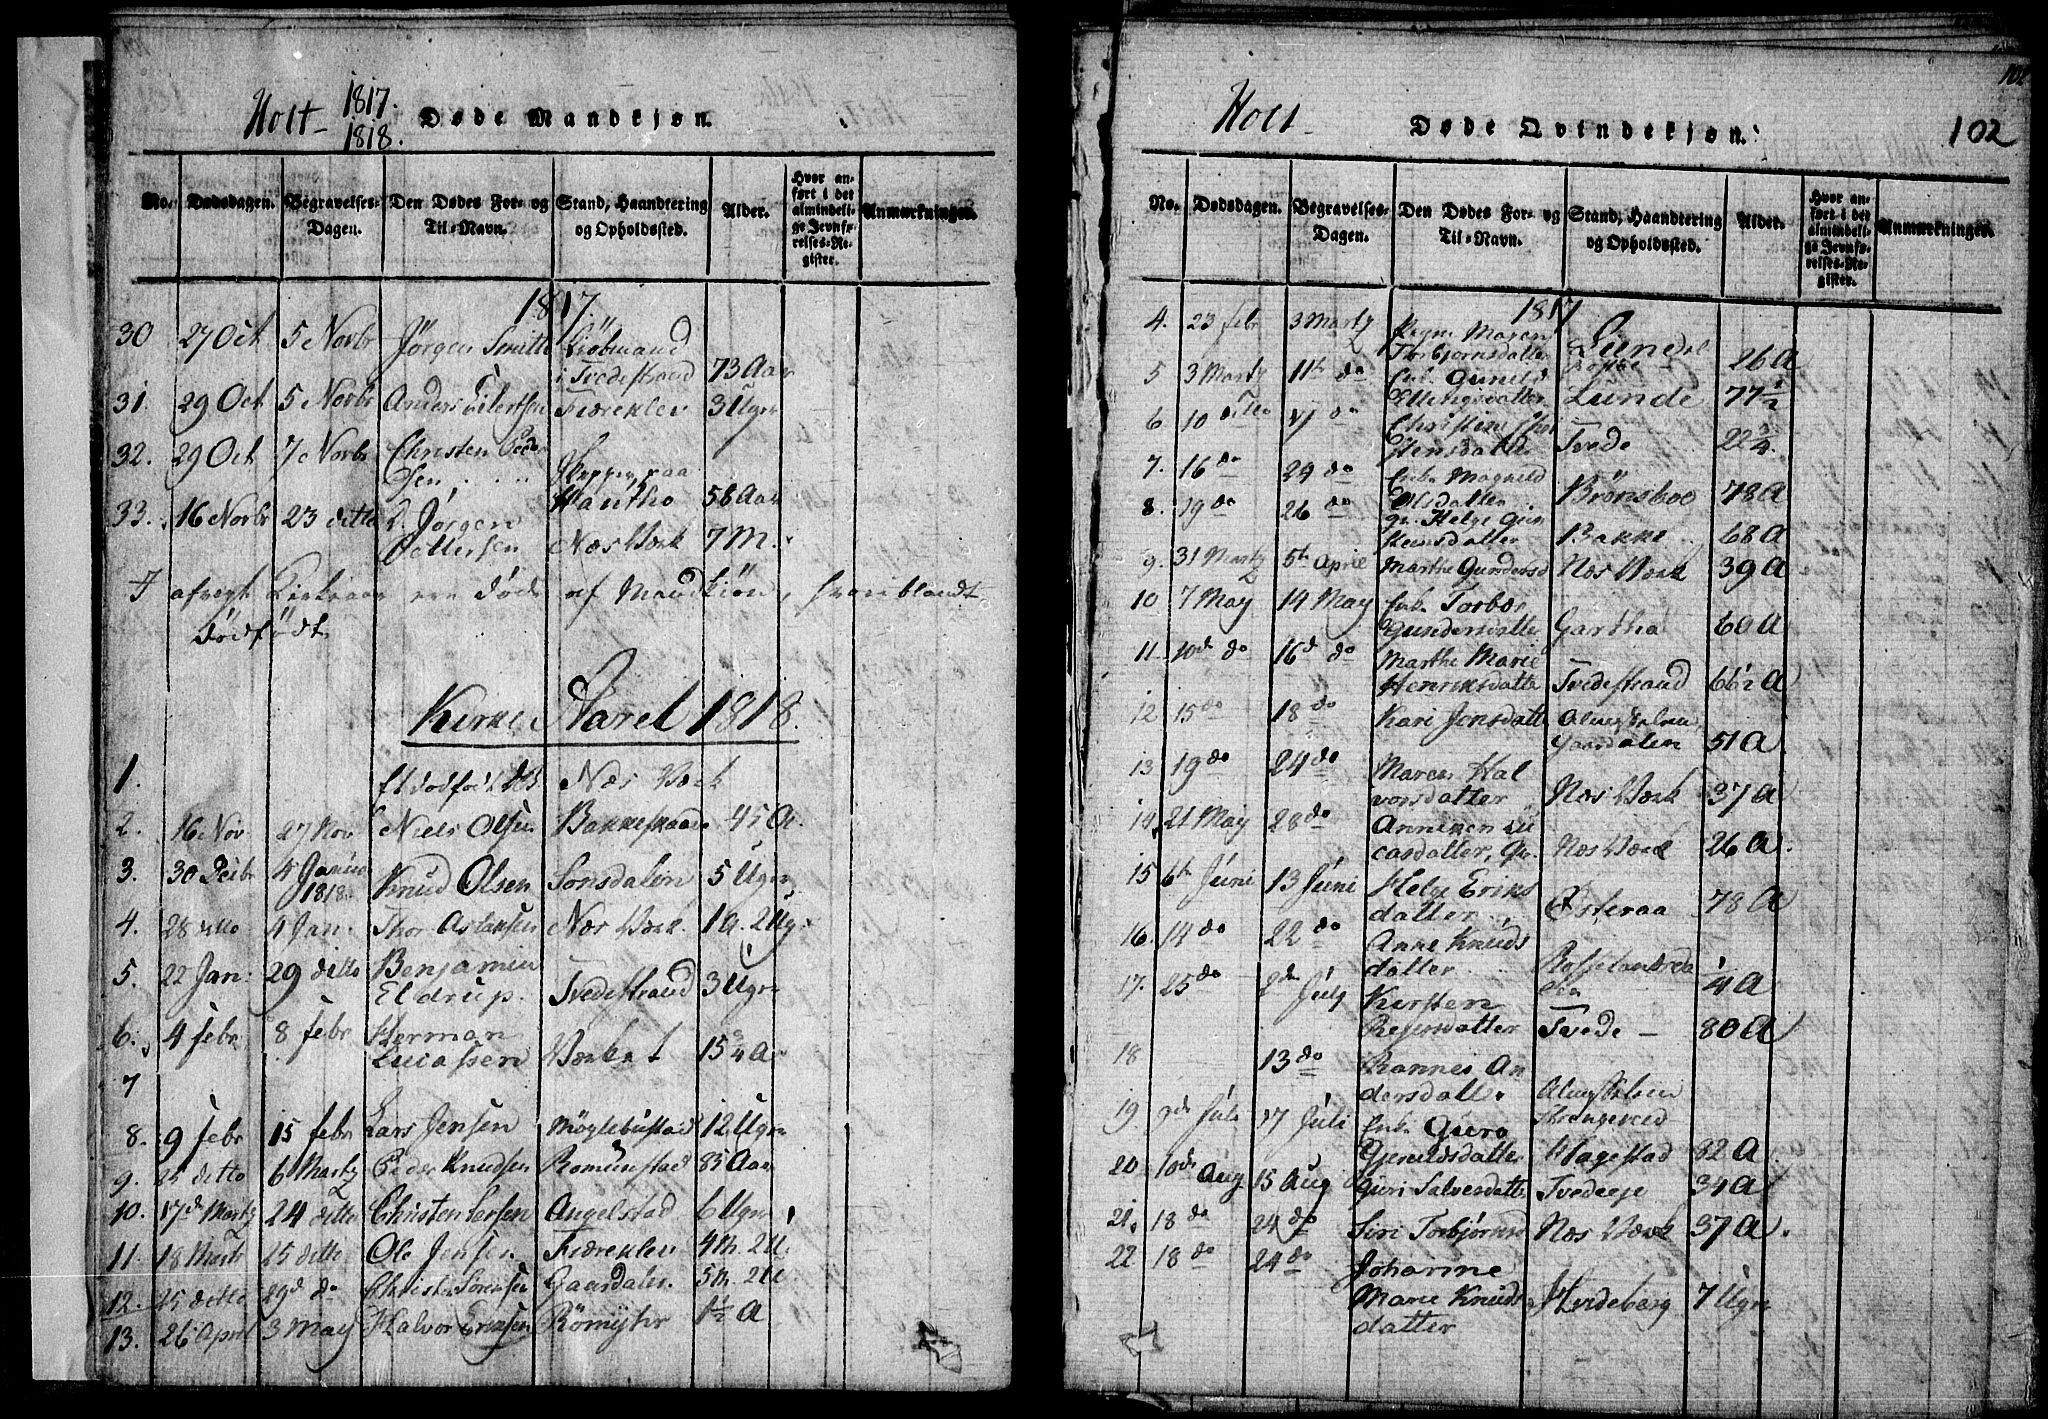 Holt 1817. 1818. Døde Mandkjøn.
No. Dødsdagen. Begravelses-Dagen. Den Dødes For- og Til-Navn. Stand, Haandtering og Opholdssted. Alder. Hvor anført i det almindelige Jevnførelses-Register. Anmærkninger.
1817.
30 27 Oct 5 Novbr Jørgen Smitt i Tvedestrand 73 Aar
31. 29 Oct 5 Novbr Anders Eilertsen Fiæreklev 3 Ugr
32. 29 Oct 7 Novbr Christen Peder
sen 58 Aar
33. 16 Novbr 23 ditto Jørgen
Pettersen Næs Værk 7 M.
ere døde af Mandkiøn, hvoriblandt
dødfødt.
Kirke Aaret 1818.
1. Et dødfødt Næs Værk
2. 16 Nov 27 Nov Niels Olsen 45 A.
3. 30 Decbr 4 Januar 1818. Knud Olsen Sonsdalen 5 Ugr
4. 28 ditto 4 Jan. Thor Aslaksen Næs Værk. 1 A. 2 Ug.
5. 22 Jan: 29 ditto Benjamin
Eldrup. Tvedestrand 3 Ugr
6. 4 febr 8 febr Herman
Lucassen 15 3/4 A
7
8. 9 febr 15 febr Lars Jensen Møglebustad 12 Ugr
9. 25 ditto 6 Martz Peder Knudsen Romundstad 85 Aar
10. 17d Martz 24 ditto Christen Angelstad 6 Ugr
11. 18 Mart 25 ditto Ole Jensen Fiæreklev 4 M. 2 U.
12. 25 ditto 29d do Christen Sørensen Gaasdalen 5 M. 2 U
13. 26 April 3 May Halvor 1 1/2 A
Holt Døde Qvindekjøn. 102
No. Dødsdagen. Begravelses-Dagen. Den Dødes For- og Til-Navn. Stand, Haandtering og Opholdssted. Alder. Hvor anført i det almindelige Jevnførelses-Register. Anmærkninger.
1817
4. 23 febr 3 Martz Maren
Torbjørnsdatter Lunde 26 A
5 3 Martz 11te do Enk. Gunild
Ellingsdatter Lunde 77 1/2
6 10 ditto do Christine Thor
stensdatter Tvede 22 3/4
7. 16 do 24 do Enk. Magnild
Olsdatter Brønsboe 78 A
8. 19 do 26 do Helge Gun
stensdatter Bakke 68 A
9. 31 Martz 5te April Marthe Gundersd Næs Værk 39 A
10 7 May 14 May Enk. Torbor
Gundersdatter Gartha 60 A
11 10de do 16d do Marthe Marie
Henriksdatter Tvedestrand 66 1/2 A
12 15 do 18 do Kari Jensdatter
Gaasdalen 51 A
13 19 do 24 do Maren Hal
vorsdatter Næs Værk 37 A
14. 21 May 28 do Anniken Lu
casdatter, Næs Værk 26 A.
15 6te Juni 13 Juni Helge Eriks
datter Østeraa 78 A
16. 14 do 22 do Anne Knuds
datter 1/4 A
17. 25 do 2den July Kirsten
Rejersdatter Tvede 80 A
18 13 do An
dersdatter
19. 9de Juli 17 Juli Enk. Guro
Gjeruldsdatter Hagestad 82 A
20 10de Aug 15 Aug Guri Salvesdatter Tvedeeje 34 A
21. 18 do 24 do Siri Torbjørnsd Næs Værk 37 A.
22 18 do 24 do Johanne
Marie Knuds
datter Hvideberg 7 Ugr